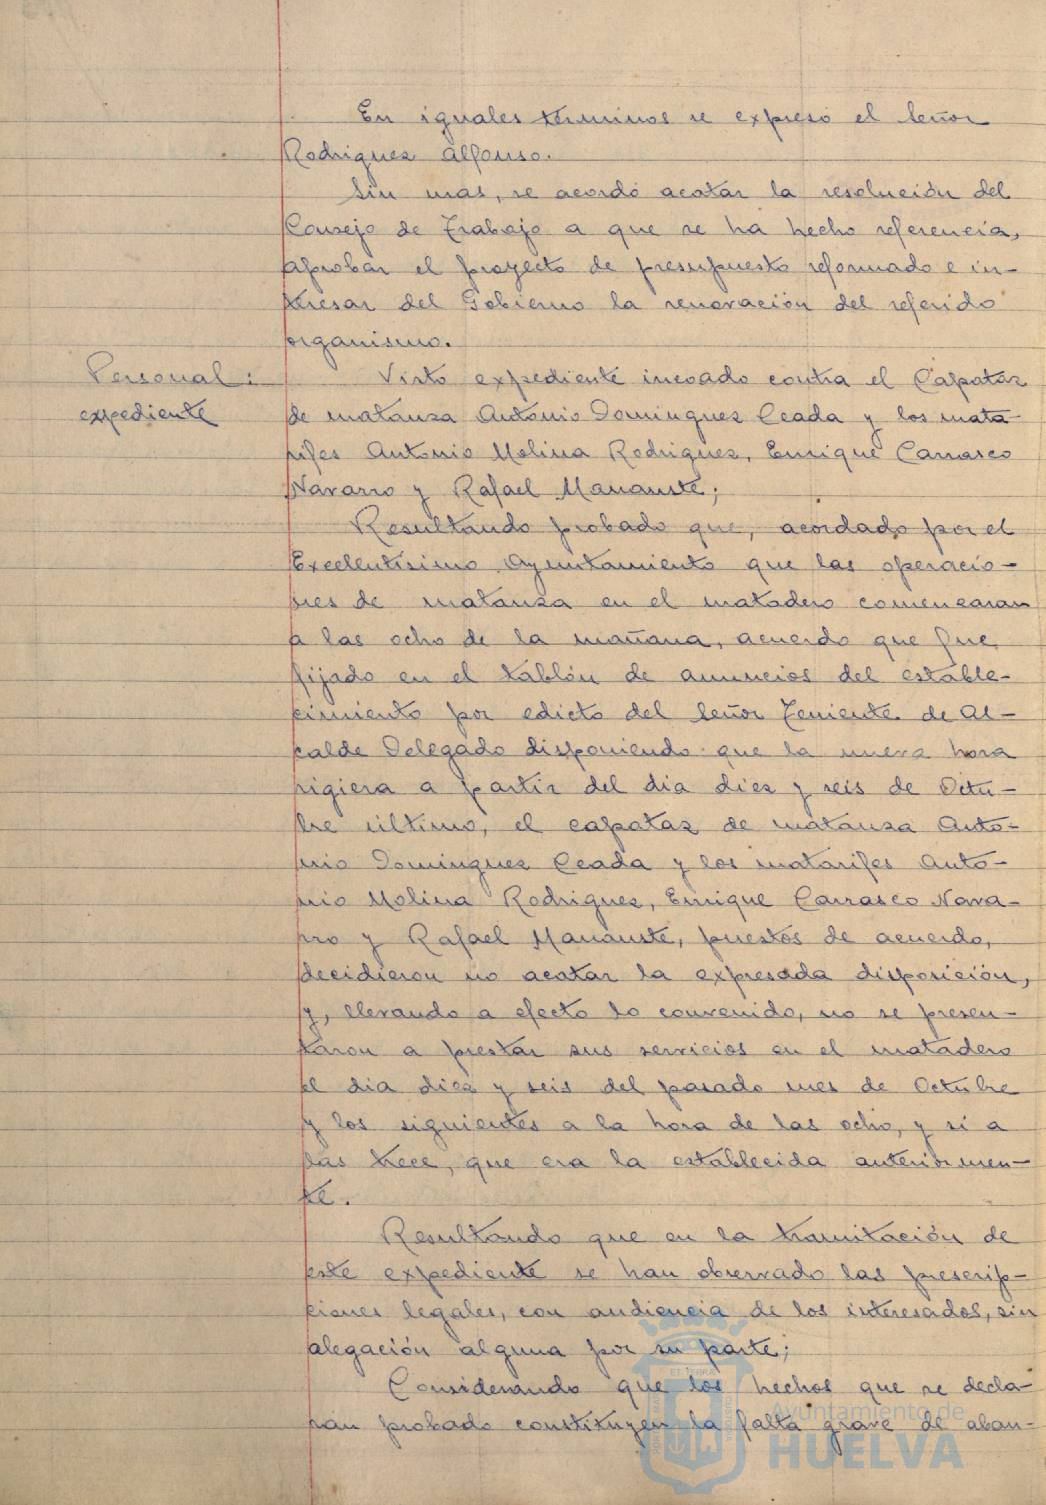 En iguales términos se expresó el Señor
Rodriguez Alfonso.
Sin mas, se acordó acatar la resolución del
Consejo de Trabajo a que se ha hecho referencia,
aprobar el proyecto de presupuesto reformado e in-
tresar del Gobierno la renovación del referido
organismo.
Personal:
expediente
Visto expediente incoado contra el Capataz
de matanza Antonio Dominguez Ceada y los mata-
rifes Antonio Molina Rodriguez, Enrique Carrasco
Navarro y Rafael
Resultando probado que, acordado por el
Excelentísimo Ayuntamiento que las operacio-
nes de matanza en el matadero comenzaran
a las ocho de la mañana, acuerdo que fue
fijado en el tablón de anuncios del estable-
cimiento por edicto del Señor Teniente de Al-
calde Delegado disponiendo que la nueva hora
rigiera a partir del dia diez y seis de Octu-
bre último, el capataz de matanza Anto-
nio Dominguez Ceada y los matarifes Anto-
nio Molina Rodriguez, Enrique Carrasco Nava-
rro y Rafael puestos de acuerdo,
decidieron no acatar la expresada disposición,
y, llevando a efecto lo convenido, no se presen-
taron a prestar sus servicios en el matadero
el dia diez y seis del pasado mes de Octubre
y los siguientes a la hora de las ocho, y si a
las trece, que era la establecida anteriormen-
te.
Resultando que en la tramitación de
este expediente se han observado las prescrip-
ciones legales, con audiencia de los interesados, sin
alegación alguna por su parte;
Considerando que los hechos que se decla-
ran probado constituyen la falta grave de aban-
Ayuntamiento de
HUELVA